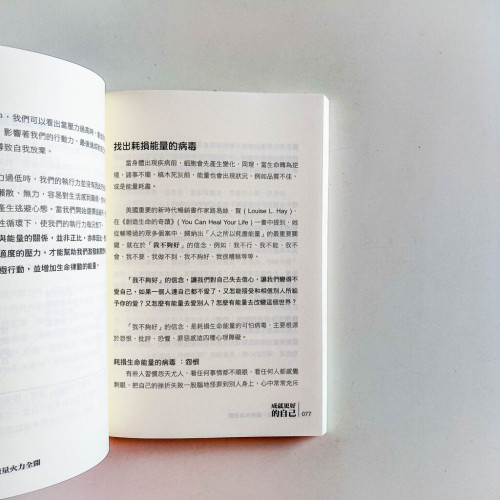 中,我們可以看出當壓力過高時,
影響著我們的行動力,最後
導致自我放棄。
力過低時,我們的執行力
懶散、無力,容易對生活感到
產生逃避心態。當我們開始
性循環下,使我們的執行力
與能量的關係,並非正比,亦非
適度的壓力,才能幫助我們
極行動,並增加生命律動的能量。
量火力全開
找出耗損能量的病毒
當身體出現疾病前,細胞會先產生變化,同理,當生命轉為逆
境、諸事不順、槁木死灰前,能量也會出現狀況,例如品質不佳,
或是能量耗盡。
美國重要的新時代暢銷書作家路易絲.賀(Louise L. Hay),
在《創造生命的奇蹟》(You Can Heal Your Life)一書中提到,她
從輔導過的眾多個案中,歸納出「人之所以耗盡能量」的最重要關
鍵,就在於「我不夠好」的信念,例如:我不行、我不能、我不
會、我不要、我做不到、我不夠好、我很糟糕等等。
「我不夠好」的信念,讓我們對自己失去信心,讓我們變得不
愛自己,如果一個人連自己都不愛了,又怎能接受和相信別人所給
予你的愛?又怎麼有能量去愛別人?怎麼有能量去改變這個世界?
「我不夠好」的信念,是耗損生命能量的可怕病毒,主要根源
於怨恨、批評、恐懼、罪惡感這四種心理障礙。
耗損生命能量的病毒:怨恨
有些人習慣怨天尤人,看任何事情都不順眼,看任何人都感覺
刺眼,把自己的挫折失敗一股腦地怪罪到別人身上,心中常常充斥
成就更好
的自己 077